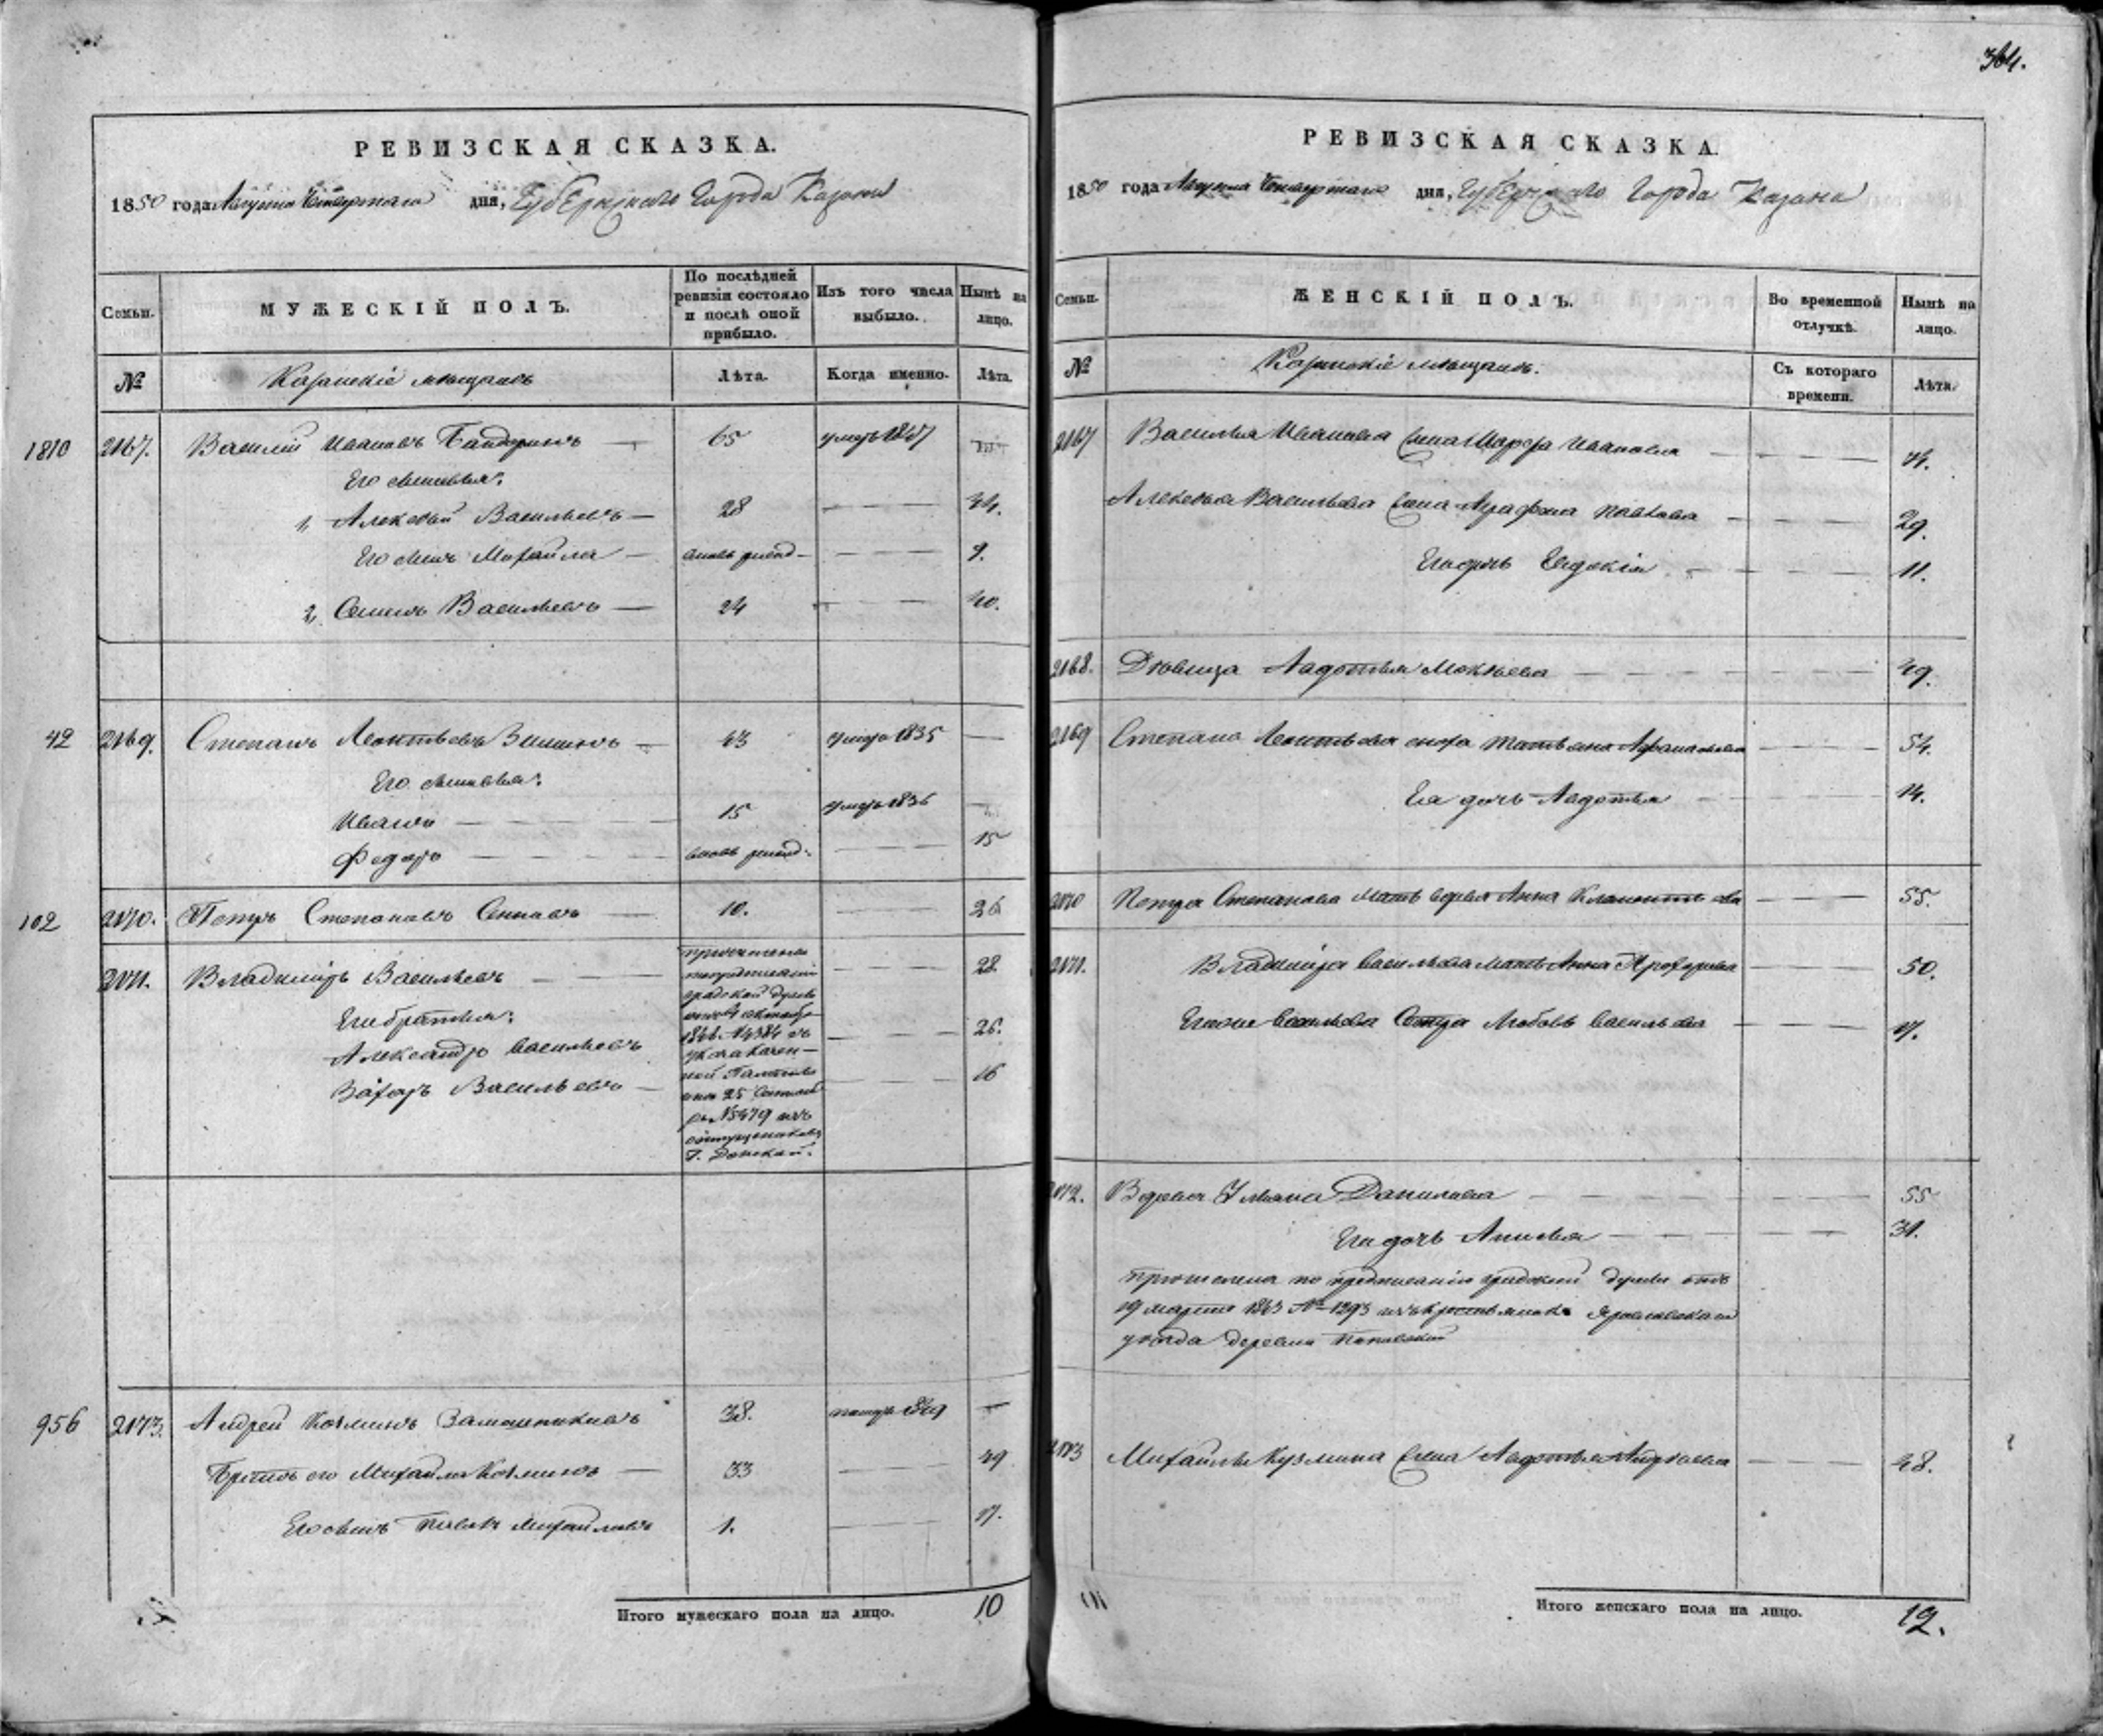 364.
РЕВИЗСКАЯ СКАЗКА.
1850 года Августа Четвертаго дня, Губернскаго Города Казани
Семьи.
МУЖЕСКІЙ ПОЛЪ.
По послѣдней ревизіи состояло и послѣ оной прибыло.
Изъ того числа выбыло.
Нынѣ на лицо.
№
Казанскіе мѣщане
Лѣта.
Когда именно.
Лѣта.
1810 2167. Василий Ивановъ 65 умеръ 1847
Его сыновья:
1, Алексѣй Васильевъ — 28 — — — 44.
Его сынъ Михайла — вновь рожд — — — 9.
2, Семенъ Васильевъ — 24 — — — 40.
42 2169. Степанъ Леонтьевъ Зиминъ — 43 умеръ 1835 —
Его сыновья:
Иванъ — — — 15 умеръ 1836 —
Федоръ — — — вновь рожд: — — — 15
102 2170. Петръ Степановъ — 10. — — — 26
2171. Владиміръ Васильевъ — — — 28
Его братья:
Александръ Васильевъ — — — 26.
Захаръ Васильевъ — — — — 16
причислены
по предписанію
градской думы
1846 № 4384
указа Казен-
ной Палаты
25 Сентяб
№ 5479 изъ
отпущенниковъ
Г. Донской.
956 2173. Андрей Козминъ 38. умеръ 1849 —
Братъ его Михайла Козминъ — 33 — — 49
Его сынъ Павелъ Михайловъ 1. — — 17.
Итого мужескаго пола на лицо. 10
РЕВИЗСКАЯ СКАЗКА.
1850 года Августа Четвертаго дня, Губернскаго Города Казани
Семьи.
ЖЕНСКІЙ ПОЛЪ.
Во временной отлучкѣ.
Нынѣ на лицо.
№
Казанскіе мѣщане.
Съ котораго времени.
Лѣта.
2167 Василья Иванова жена Марфа Иванова — — — —
Алексѣя Васильева жена Аграфена Павлова — — — — 39.
Его дочь Евдокія — — — — 11.
2168. Дѣвица Авдотья — — — — 49.
2169 Степана Леонтьева сноха Татьяна Афанасьева — — — 54.
Ея дочь Авдотья — — — — 14.
2170 Петра Степанова мать вдова Анна Климентьева — — — 55.
2171. Владиміра Васильева мать Анна Прохорова — — — 50.
Его же Васильева Сестра Любовь Васильева — — — — 17.
2172. Вдова Ульяна Данилова — — — — 55
Ея дочь Анисья — — — — 31.
причислена по предписанію градской думы отъ
19 марта 1843 № 1293 изъ крестьянокъ
уѣзда деревни
2173 Михайлы Кузмина жена Авдотья Андреева — — — 48.
Итого женскаго пола на лицо. 12.